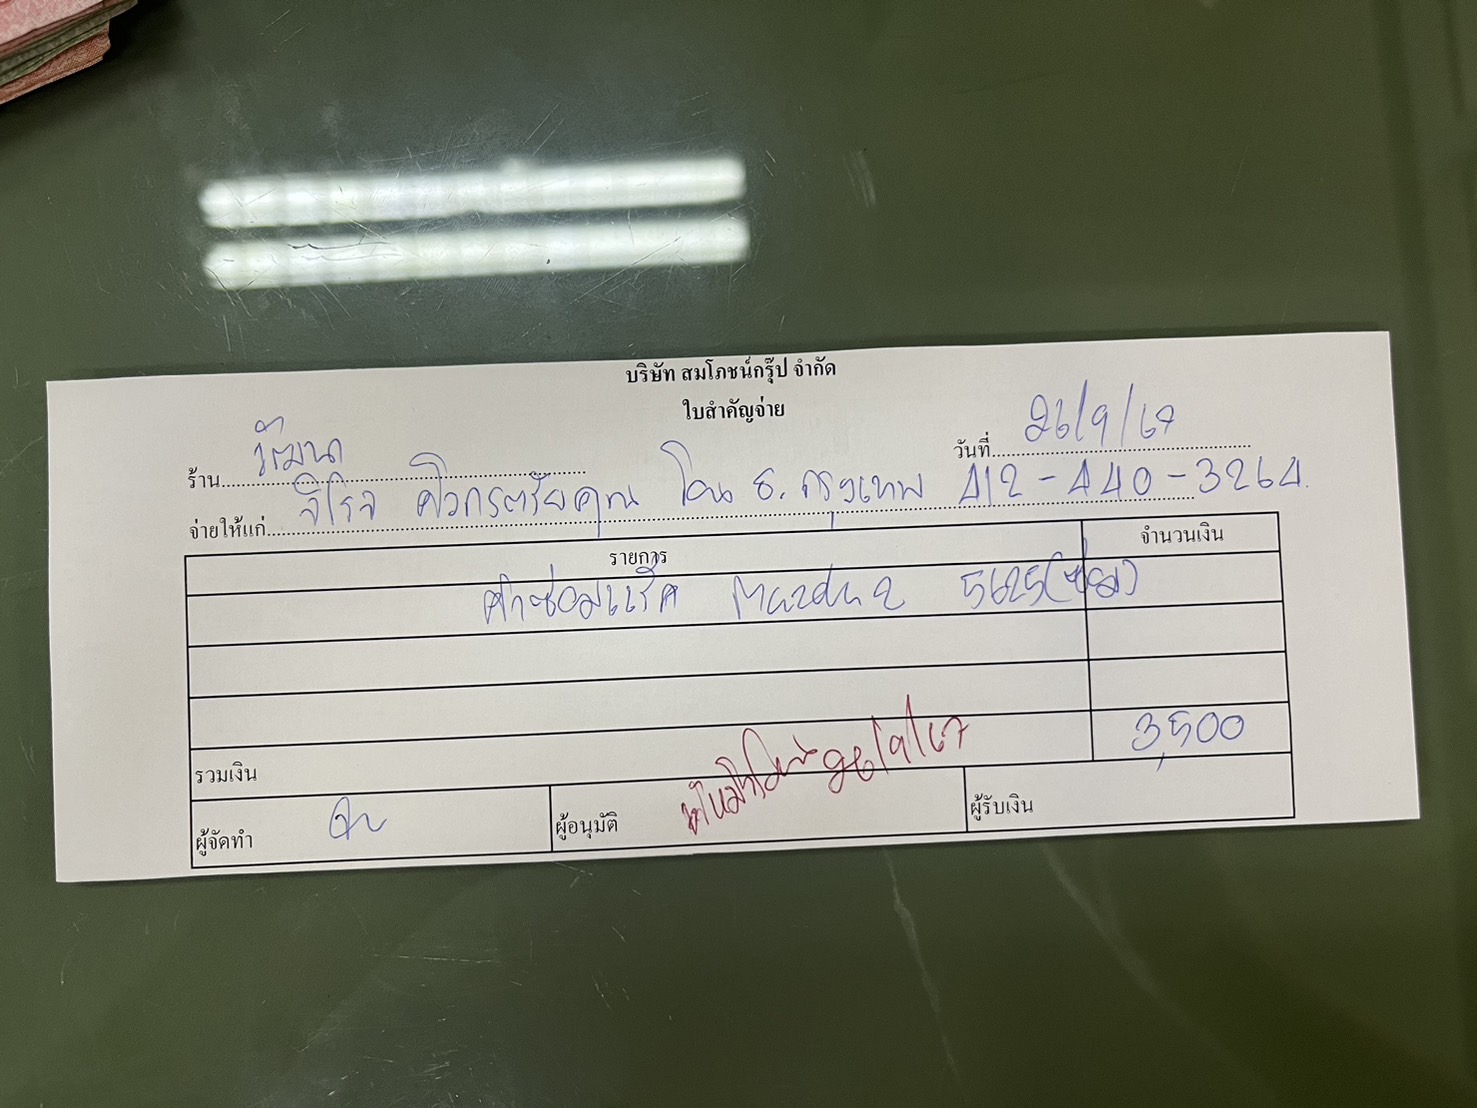 บริษัท สมโภชน์กรุ๊ป จำกัด
ใบสำคัญจ่าย
ร้าน วัฒนา วันที่ 26/9/67
จ่ายให้แก่ วิโรจ โอน ธ. กรุงเทพ 412-440-3264
รายการ จำนวนเงิน
ค่าซ่อมแร็ค Mazda 2 5625 (ซ่อม)
รวมเงิน 3,500
ผู้จัดทำ ผู้อนุมัติ 26/9/67 ผู้รับเงิน